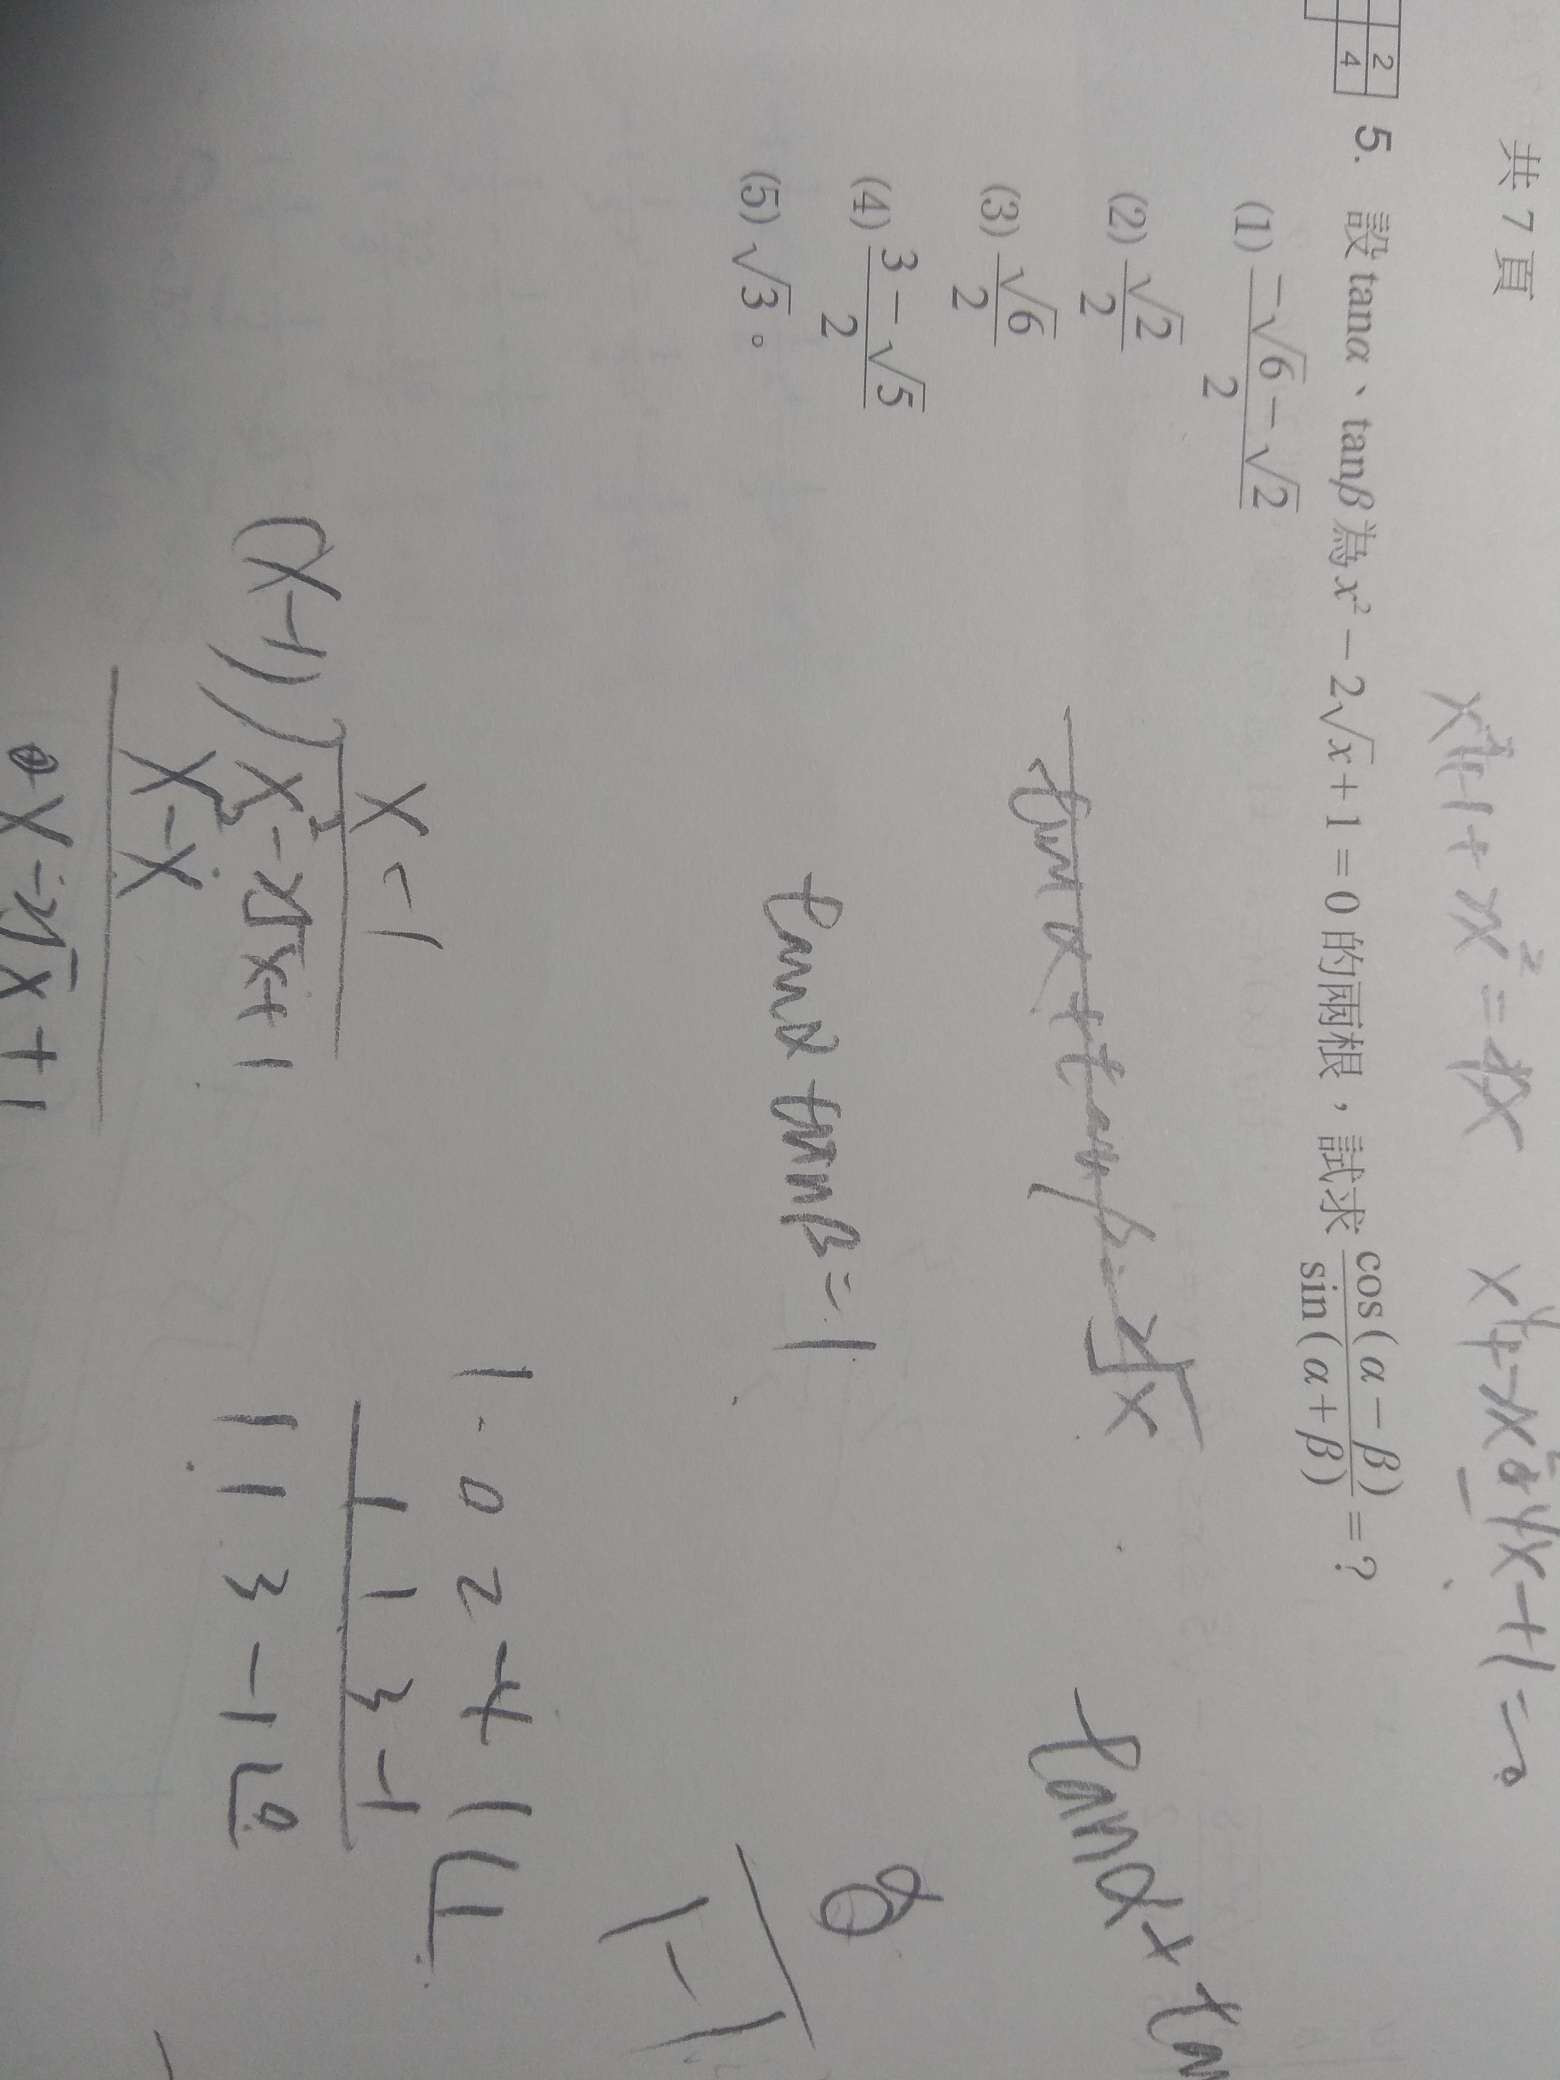 共 7 頁
2
4
5. 設 tanα、tanβ 為 x² − 2√x + 1 = 0 的兩根，試求 cos(α − β)/sin(α + β) = ?
(1) (−√6 − √2)/2
(2) √2/2
(3) √6/2
(4) (3 − √5)/2
(5) √3。
x⁴+1+2x²=4x
tanα+tanβ=2√x
tanα tanβ=1
tanα+
1 0 2 -4 1 | 1
1 1 3 -1
1 1 3 -1 | 0
1-1
x-1
(x-1) x²-2√x+1
x²-x
x-2√x+1